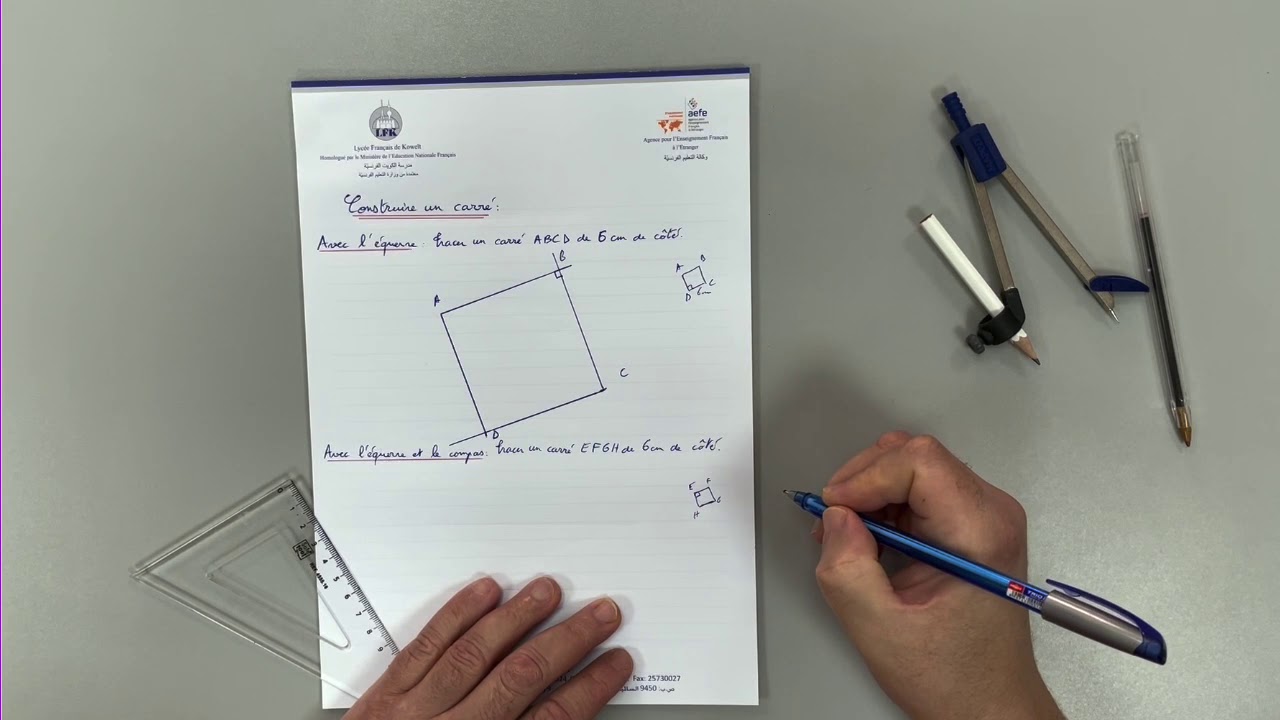 LFK
Lycée Français de Koweït
Homologué par le Ministère de l'Education Nationale Français
مدرسة الكويت الفرنسيّة
معتمدة من وزارة التعليم الفرنسيّة
aefe
Agence pour l'Enseignement Français
à l'Étranger
وكالة التعليم الفرنسيّة
Construire un carré :
Avec l'équerre : tracer un carré ABCD de 6 cm de côté.
B
A
C
D
A B
C
D 6cm
Avec l'équerre et le compas : tracer un carré EFGH de 6cm de côté.
E F
G
H
0
1
2
3
4
5
6
7
8
9
TRIO
Fax: 25730027
ص.ب: 9450